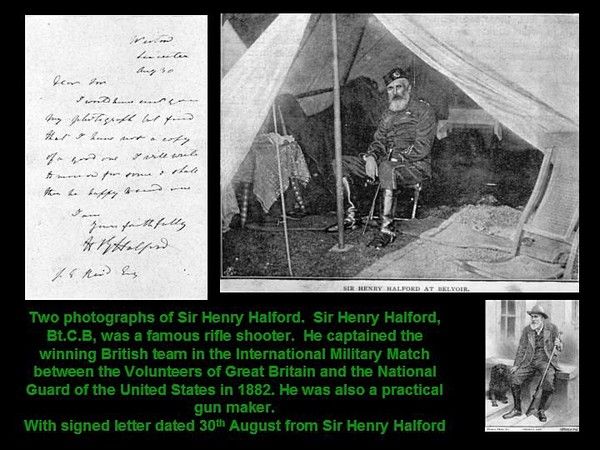 Wistow
Leicester
Aug 30
Dear Sir
I would have sent you
my photograph but find
that I have not a copy
of a good one I will write
to
for some & shall
then be happy to send one
I am
Yours faithfully
H Halford
Esq
SIR HENRY HALFORD AT BELVOIR.
Two photographs of Sir Henry Halford. Sir Henry Halford,
Bt.C.B, was a famous rifle shooter. He captained the
winning British team in the International Military Match
between the Volunteers of Great Britain and the National
Guard of the United States in 1882. He was also a practical
gun maker.
With signed letter dated 30th August from Sir Henry Halford